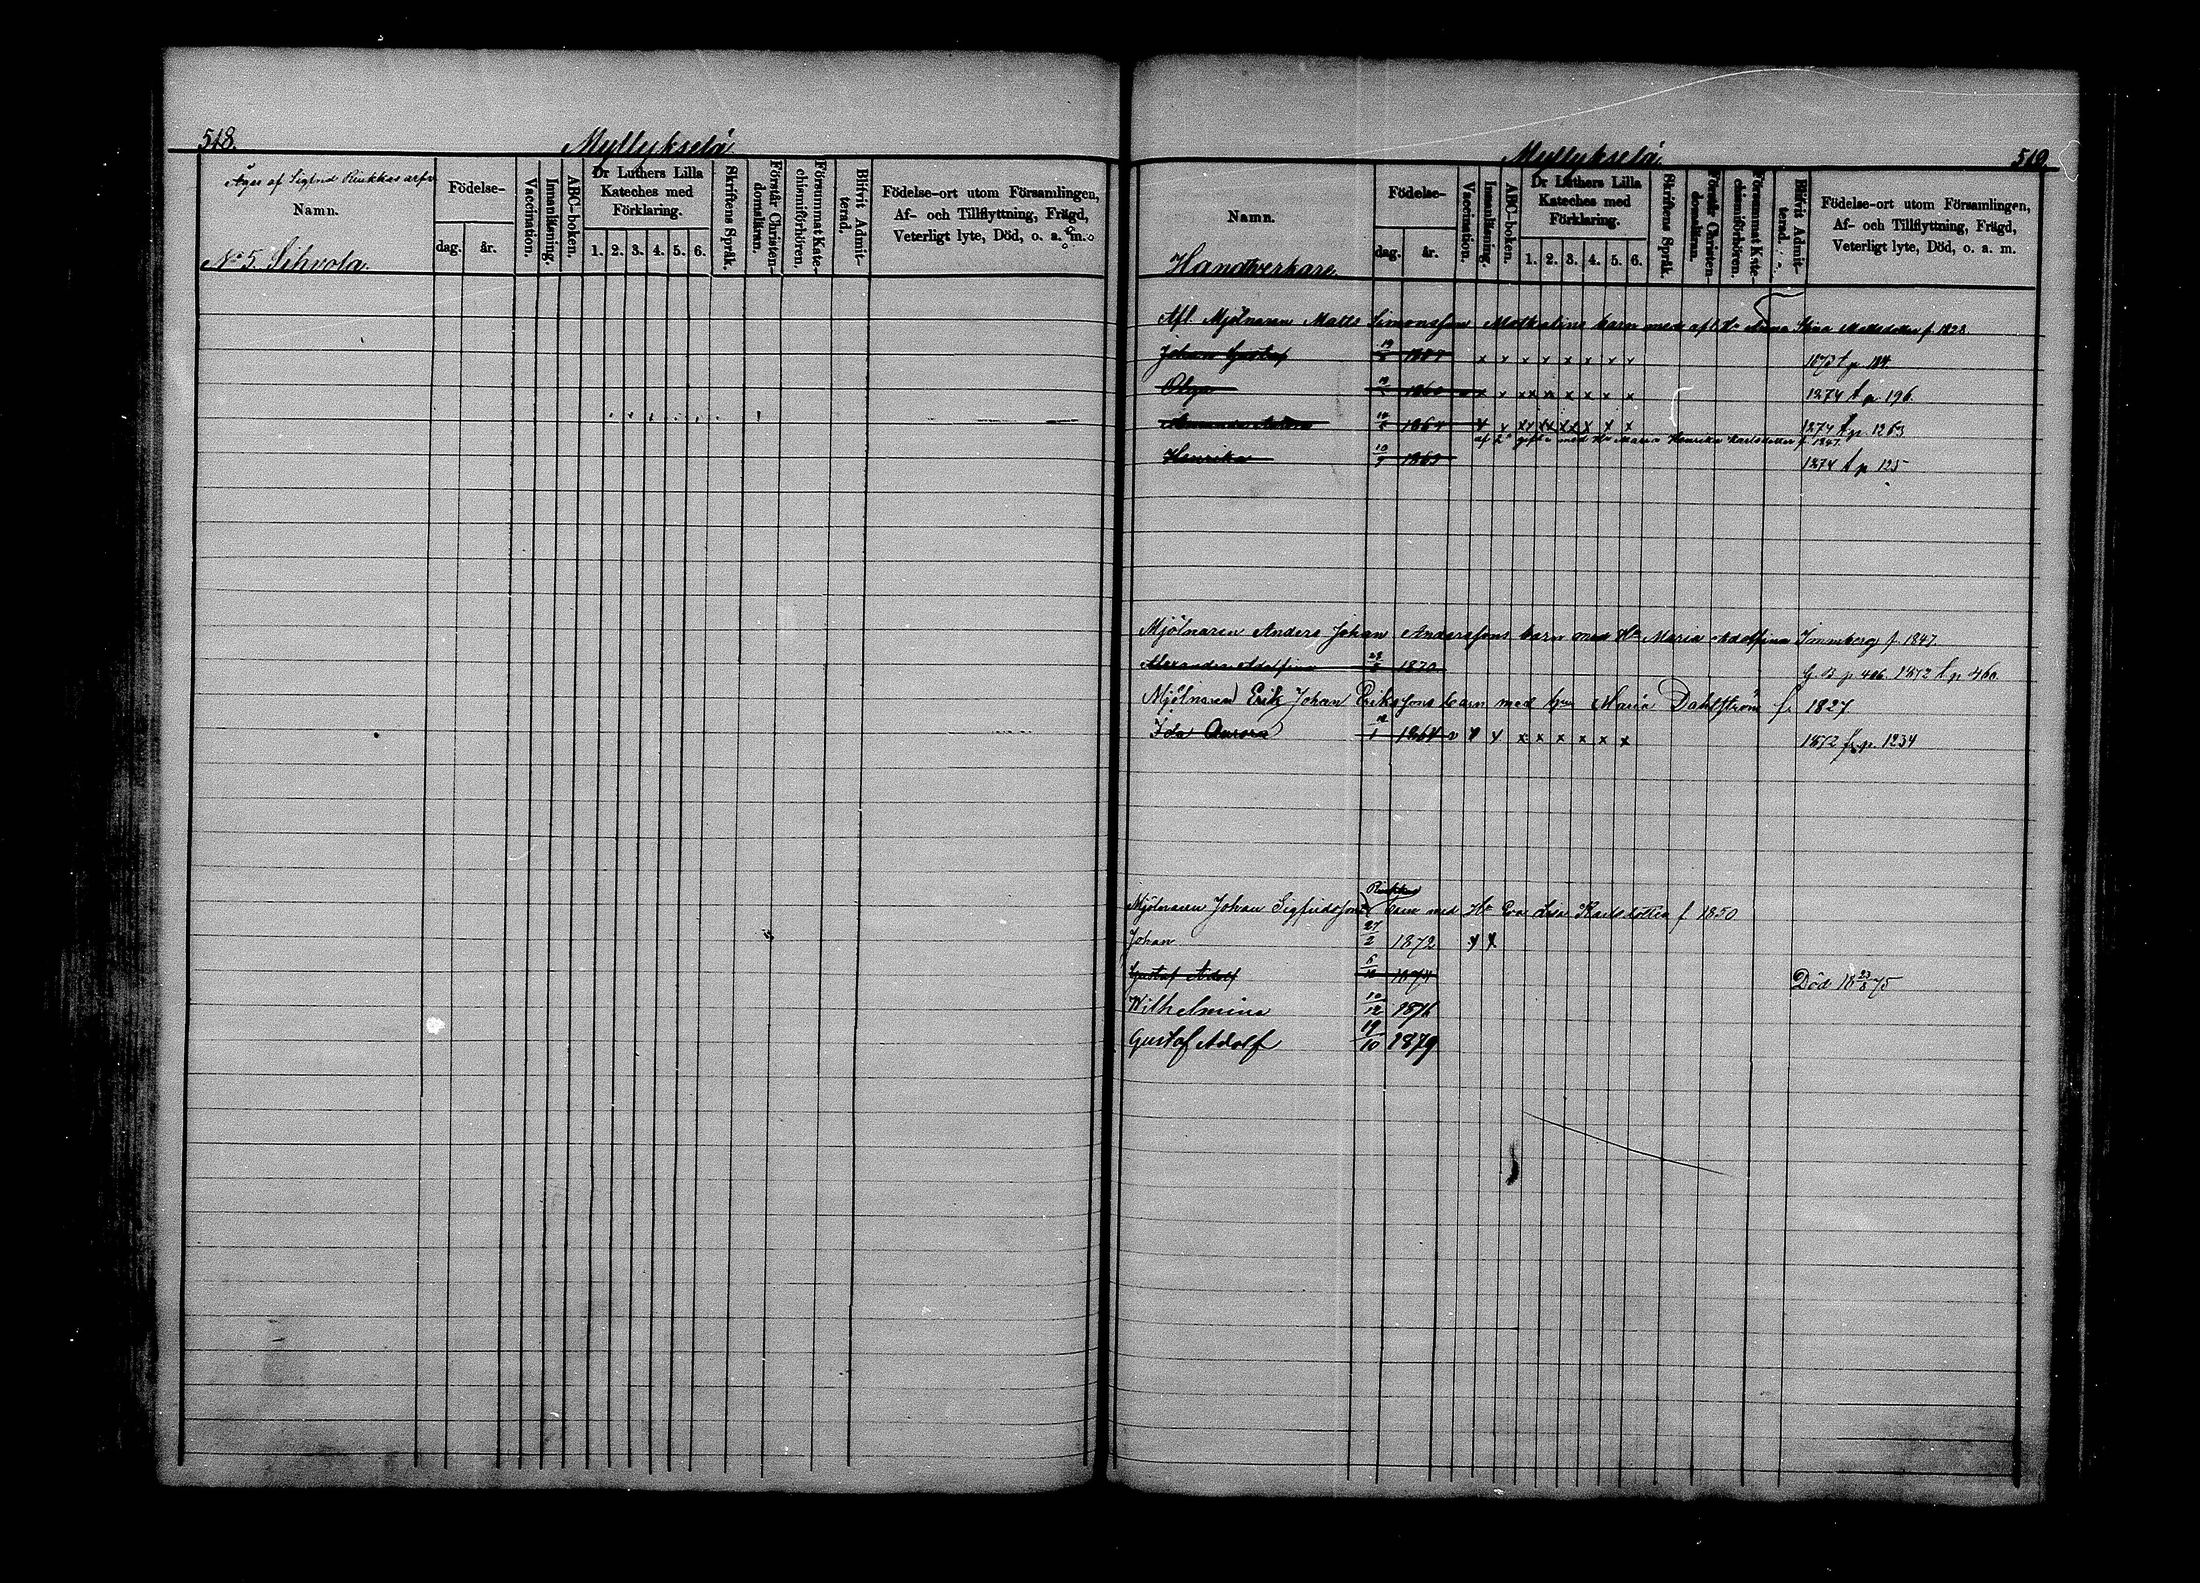 518.
Myllykselä
Äges af Sigfrid Riukkas arfv.
Namn.
No 5. Sihvola.
Födelse-
dag. år.
Vaccination.
Innanläsning.
ABC-boken.
Dr Luthers Lilla
Kateches med
Förklaring.
1. 2. 3. 4. 5. 6.
Skriftens Språk.
Förstår Christen-
domsläran.
Försummat Kate-
chismiförhören.
Blifvit Admit-
terad.
Födelse-ort utom Församlingen,
Af- och Tillflyttning, Frägd,
Veterligt lyte, Död, o. a. m.
Myllykselä
519.
Namn.
Handtverkare.
Födelse-
dag. år.
Vaccination.
Innanläsning.
ABC-boken.
Dr Luthers Lilla
Kateches med
Förklaring.
1. 2. 3. 4. 5. 6.
Skriftens Språk
Förstår Christen-
domsläran.
Försummat Kate-
chismiförhören.
Blifvit Admit-
terad.
Födelse-ort utom Församlingen,
Af- och Tillflyttning, Frägd,
Veterligt lyte, Död, o. a. m.
Afl. Mjölnaren Matts Simonsson barn med afl. Hu Anna Stina Mattsdotter f. 1828
Johan Gustaf x x x x x x x x 1873 t p. 184
Olga x x x x x x x x 1874 t p 196.
1864 x x x x x x x x 1274 t p. 1263
af 2a gifte med Hu Maria Henrika Karlsdotter f. 1847.
Henrika 1869 1274 t p 125
Mjölnaren Anders Johan Anderssons barn med Hu Maria Adolfina Immberg f. 1847.
Alexandra Adolfina 1870 G. B. p 406 1872 t p 460.
Mjölnaren Erik Johan Erikssons barn med hu Maria Dahlström f. 1827
Ida Aurora 1864 v x x x x x x x x 1872 p. 1234
Mjölnaren Johan Sigfridssons Riukkas barn med Hu Eva Lisa Karlsdotter f 1850
Johan 27/2 1872 x x
Gustaf Adolf 1874 Död 18 23/8 75
Wilhelmina 10/12 1876
Gustaf Adolf 19/10 1879